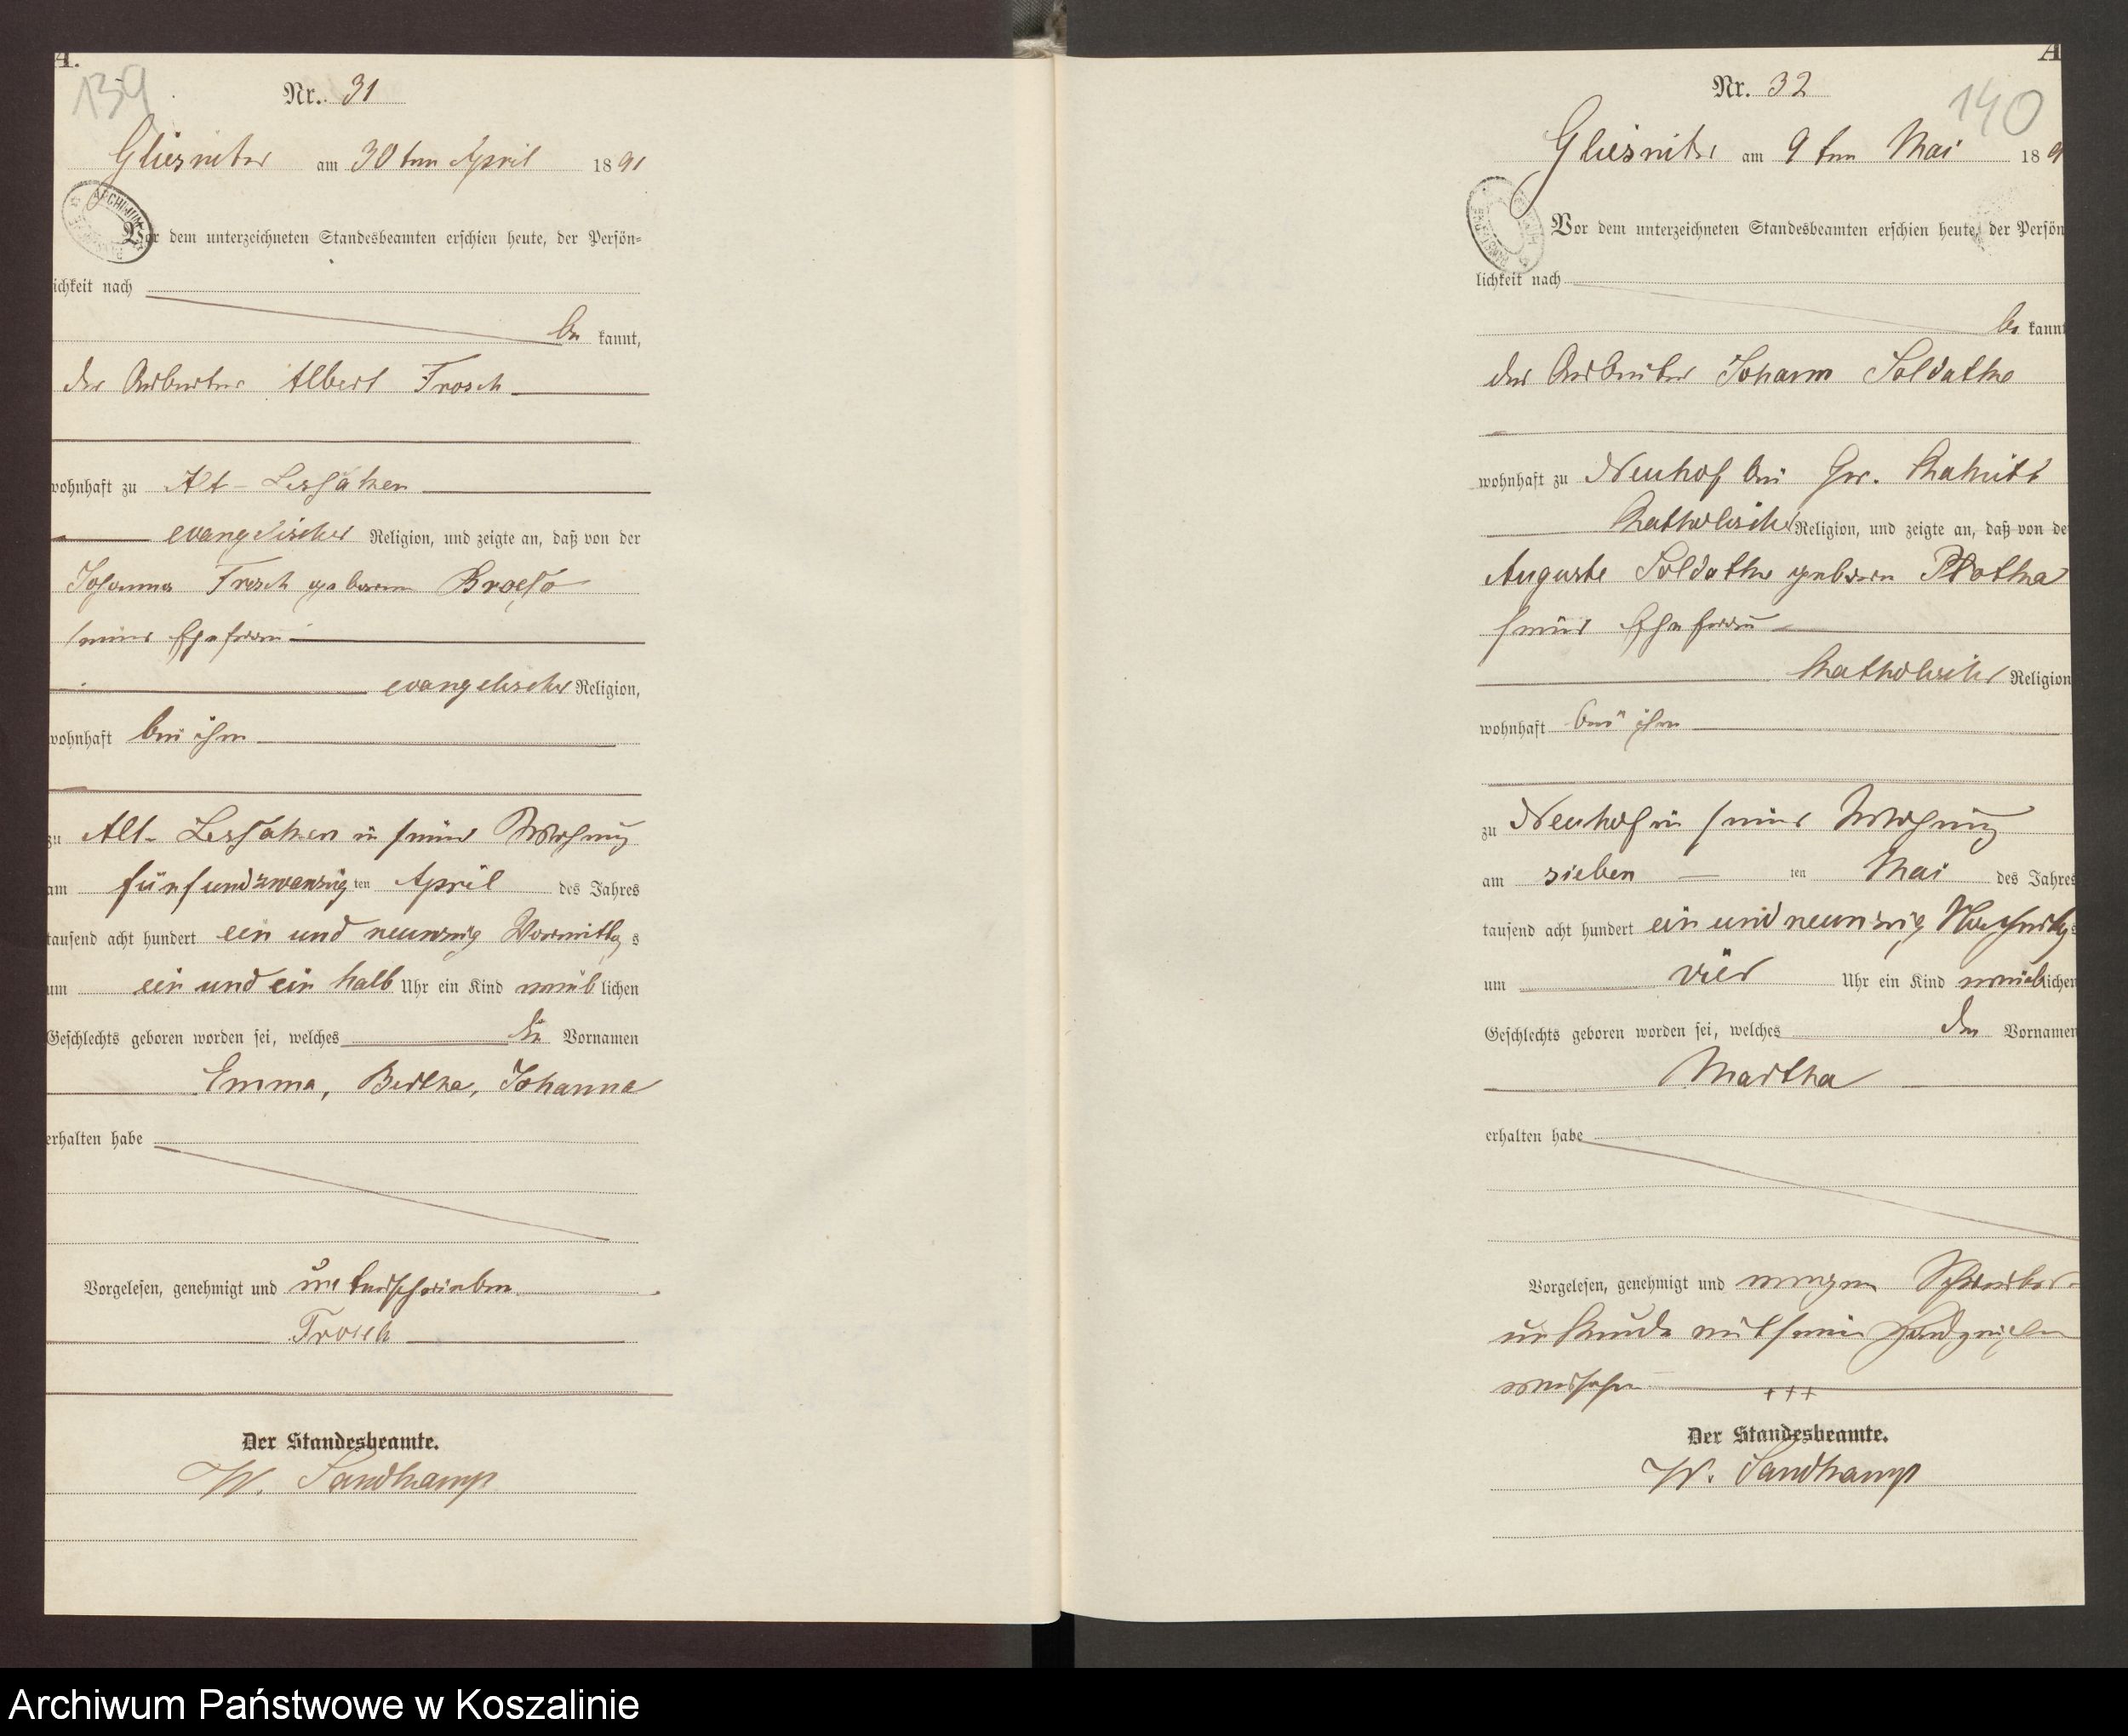 A.
139
Nr. 31
Gliesnitz am 30ten April 1891
Vor dem unterzeichneten Standesbeamten erschien heute, der Persön=
ichkeit nach
be kannt,
der Arbeiter Albert Frosch
wohnhaft zu Alt-Lessaken
evangelischer Religion, und zeigte an, daß von der
Johanna Frosch geborene
seiner Ehefrau
evangelischer Religion,
wohnhaft bei ihm
zu Alt-Lessaken in seiner Wohnung
am fünfundzwanzig ten April des Jahres
tausend acht hundert ein und neunzig Vormittag s
um ein und ein halb Uhr ein Kind weib lichen
Geschlechts geboren worden sei, welches die Vornamen
Emma, Bertha, Johanna
erhalten habe
Vorgelesen, genehmigt und unterschrieben
Frosch
Der Standesbeamte.
W. Sandkamp
A
140
Nr. 32
Gliesnitz am 9ten Mai 189
Vor dem unterzeichneten Standesbeamten erschien heute, der Persön
lichkeit nach
be kannt
der Arbeiter Johann Soldatke
wohnhaft zu Neuhof bei Gr.
katholischer Religion, und zeigte an, daß von de
Auguste Soldatke geborene
seiner Ehefrau
katholischer Religion
wohnhaft bei ihm
zu Neuhof in seiner Wohnung
am sieben ten Mai des Jahres
tausend acht hundert ein und neunzig Nachmittags
um vier Uhr ein Kind weiblichen
Geschlechts geboren worden sei, welches den Vornamen
Martha
erhalten habe
Vorgelesen, genehmigt und wegen Schreibens-
unkunde mit seinem Handzeichen
versehen +++
Der Standesbeamte.
W. Sandkamp
Archiwum Państwowe w Koszalinie